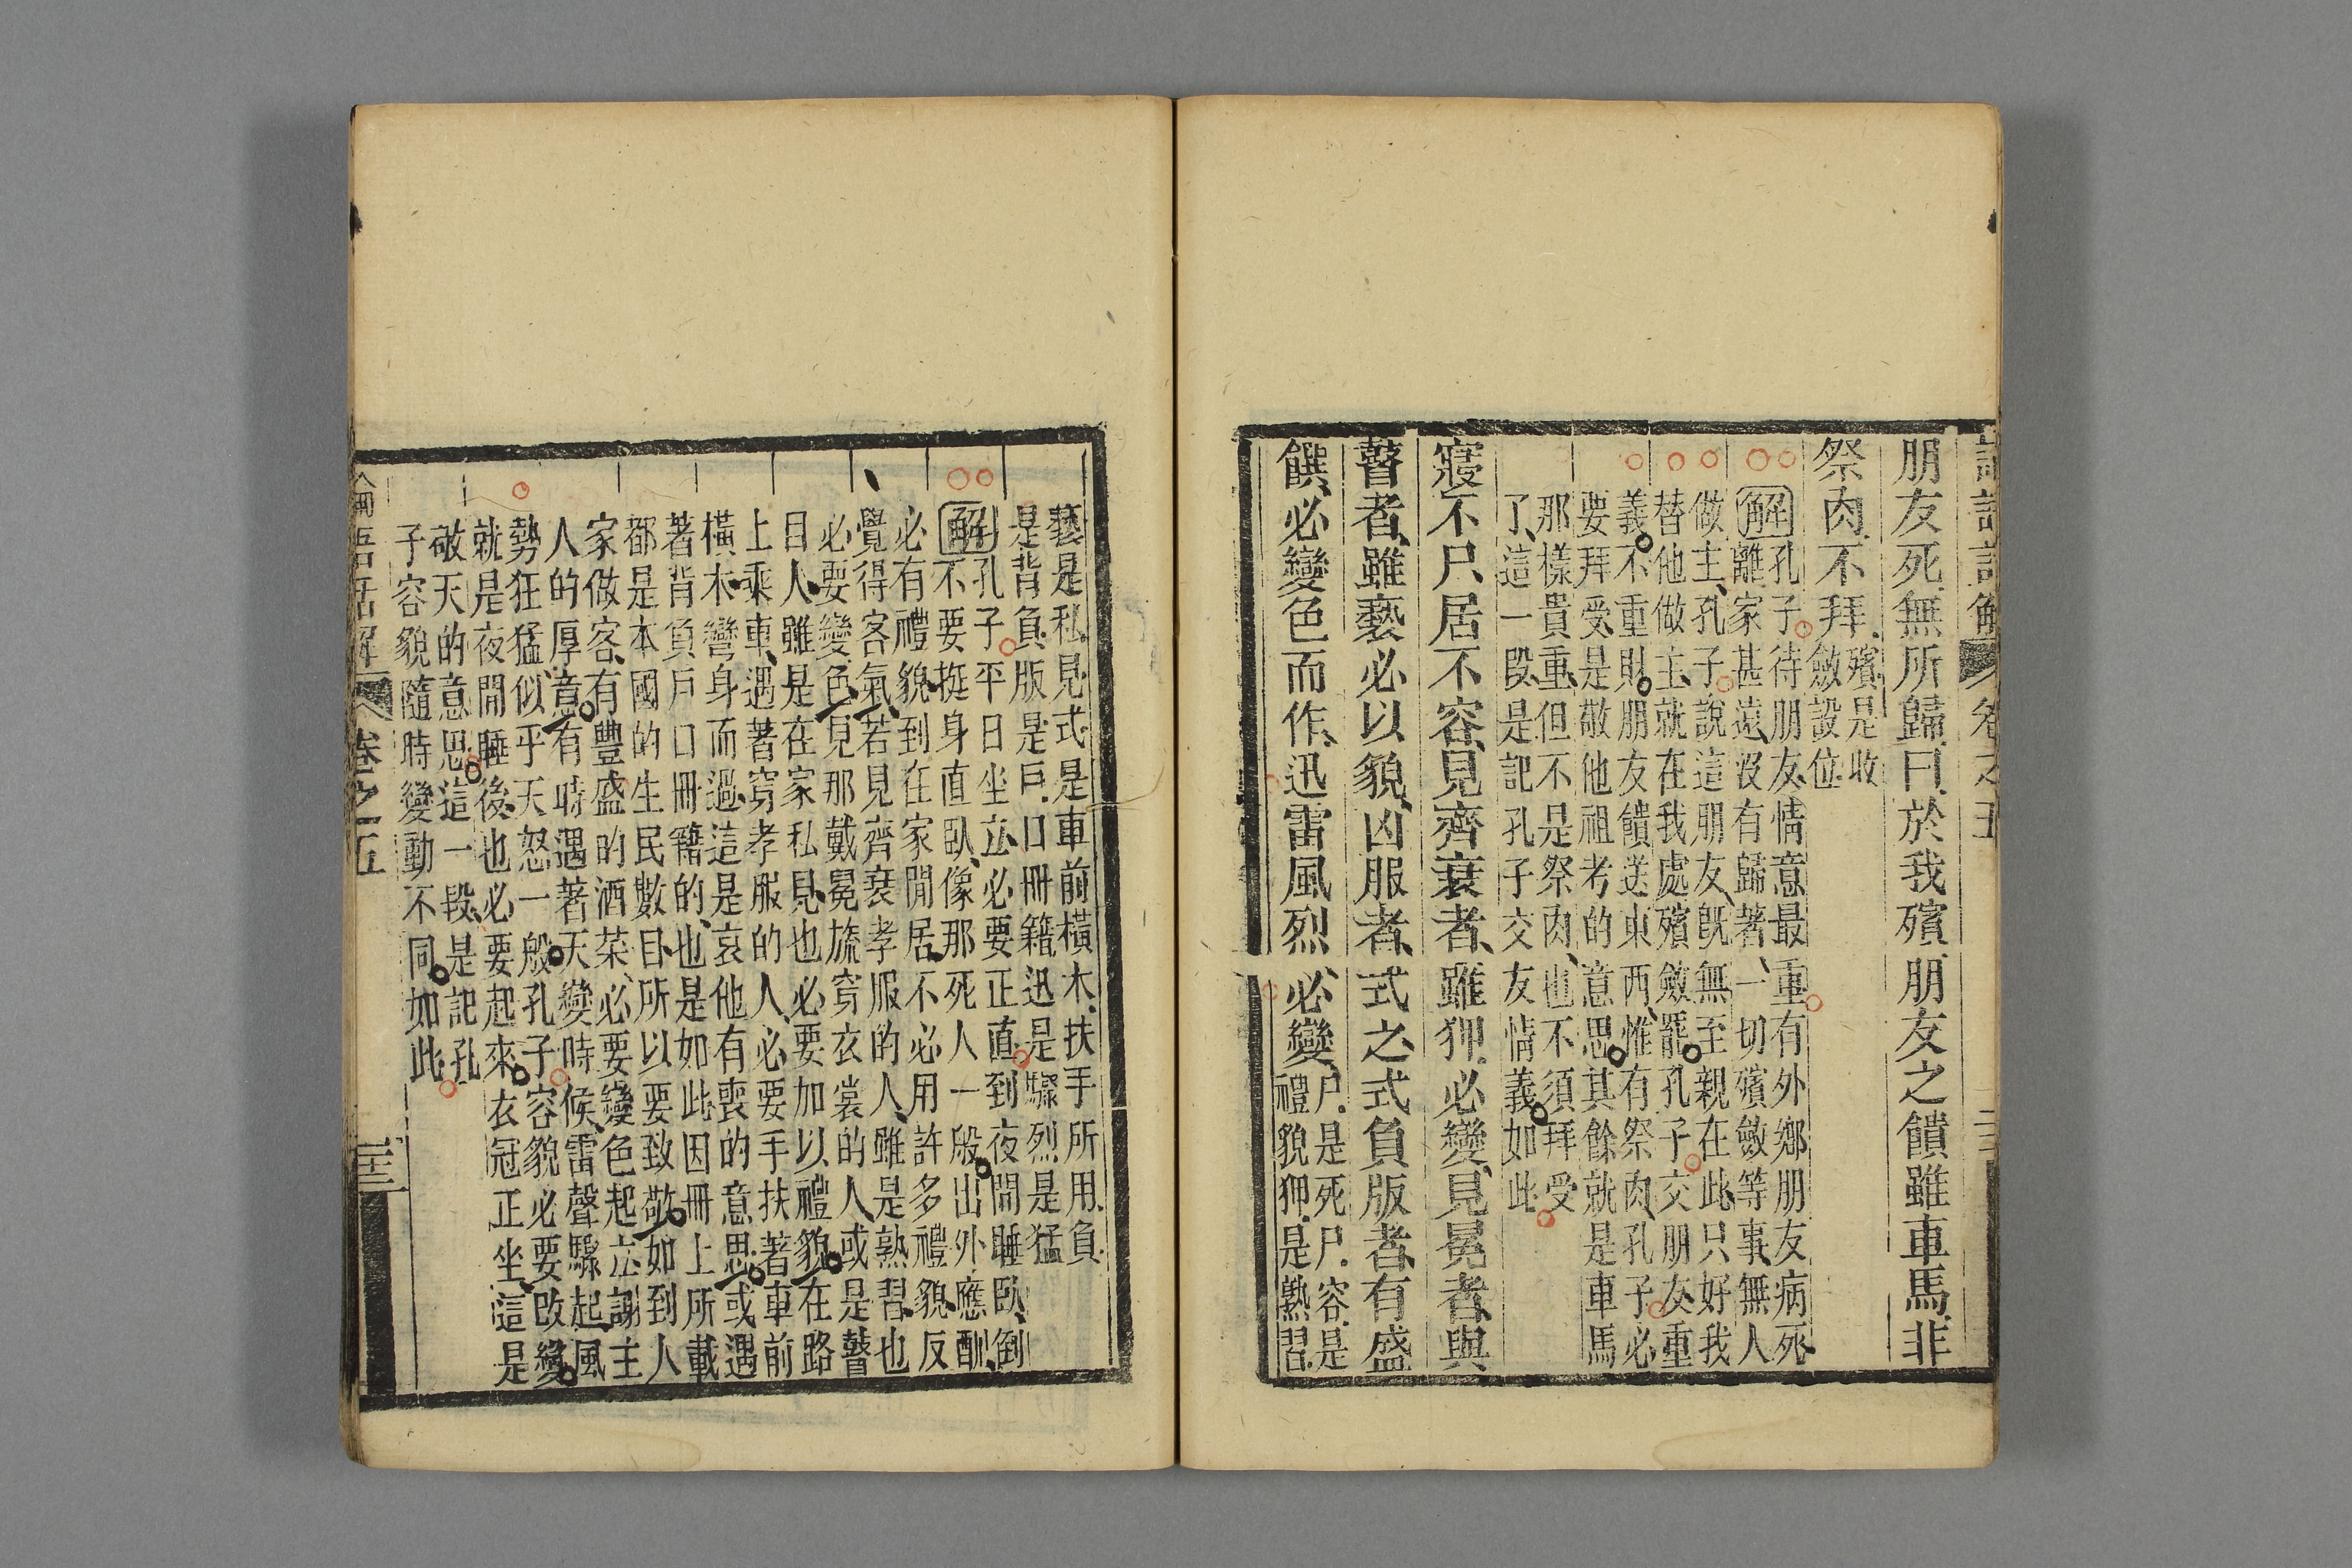 朋友死、無所歸、曰、於我殯、朋友之饋、雖車馬、非
祭肉、不拜、
殯是收
斂設位
解
孔子待朋友、情意最重、有外鄉朋友病死、
離家甚遠、沒有歸著、一切殯斂等事、無人
做主、孔子說這朋友、旣無至親在此、只好我
替他做主、就在我處殯斂罷、孔子交朋友、重
義不重財、朋友饋送東西、惟有祭肉、孔子必
要拜受、是敬他祖考的意思、其餘就是車馬
那樣貴重、但不是祭肉、也不須拜受
了、這一段、是記孔子交友情義如此、
寢不尸、居不容、見齊衰者、雖狎、必變、見冕者、與
瞽者、雖褻、必以貌、凶服者、式之、式負版者、有盛
饌、必變色而作、迅雷風烈、必變、
尸、是死尸、容、是
禮貌、狎、是熟習、
褻是私見、式是車前橫木、扶手所用、負
是背負、版是戶口冊籍、迅是驟、烈是猛
解
孔子平日坐立、必要正直、到夜間睡臥、倒
不要挺身直臥、像那死人一般、出外應酬、
必有禮貌、到在家閒居、不必用許多禮貌、反
覺得客氣、若見齊衰孝服的人、雖是熟習、也
必要變色、見那戴冕旒穿衣裳的人、或是瞽
目人、雖是在家私見、也必要加以禮貌、在路
上乘車、遇著穿孝服的人、必要手扶著車前
橫木、彎身而過、這是哀他有喪的意思、或遇
著背負戶口冊籍的、也是如此、因冊上所載
都是本國的生民數目、所以要致敬、如到人
家做客、有豐盛的酒菜、必要變色起立、謝主
人的厚意、有時遇著天變時候、雷聲驟起、風
勢狂猛、似乎天怒一般、孔子容貌、必要改變、
就是夜間睡後、也必要起來、衣冠正坐、這是
敬天的意思、這一段、是記孔
子容貌、隨時變動不同、如此、
卷之五